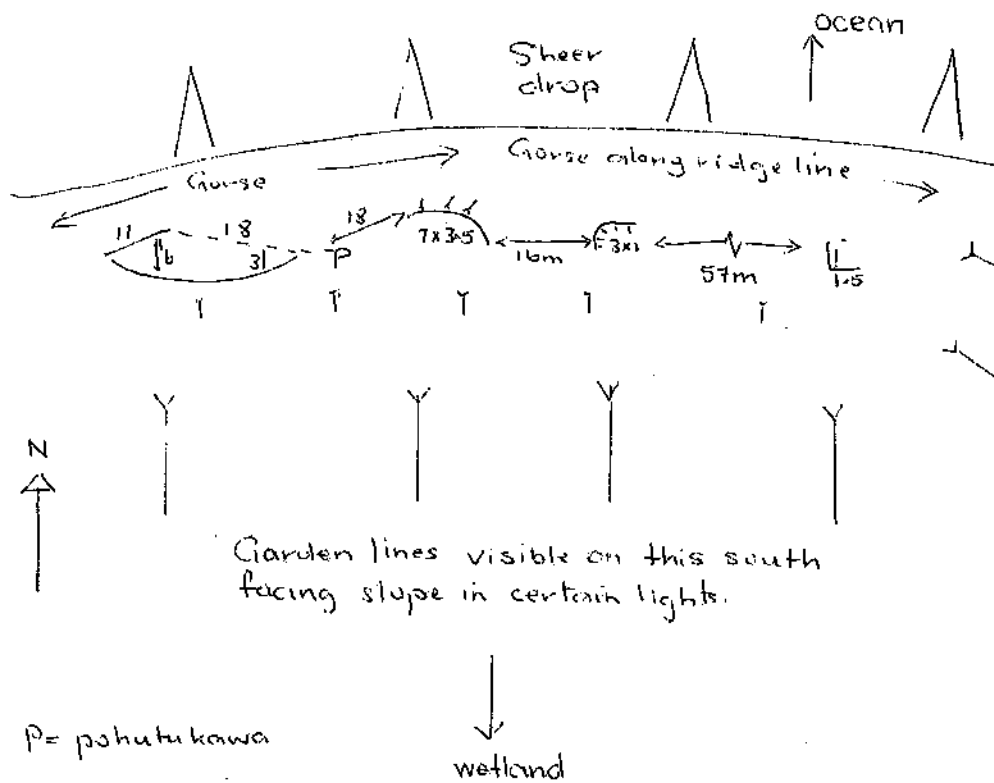 ocean
Sheer
drop
Gorse
Gorse along ridge line
11
18
6
3
P
18
7x3.5
16m
57m
1.5
N
Garden lines visible on this south
facing slope in certain lights.
P= pohutukawa
wetland